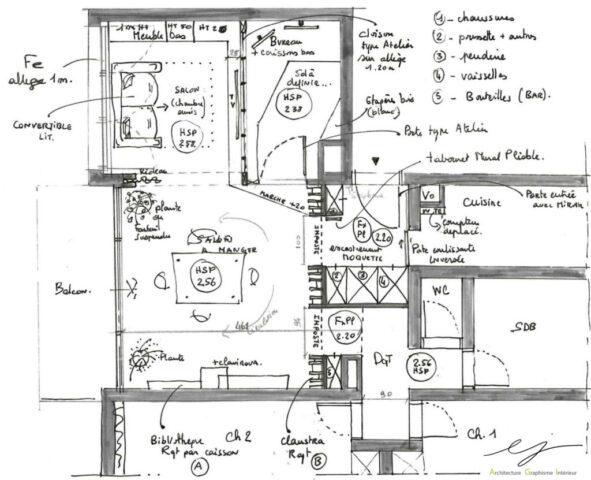 1m Ht
Meuble
Ht 50
bas
HT 2
Bureau
+ caissons bas
Cloison
type Atelier
sur allège
1.20m
① - chaussures
② -
③ - penderie
④ - vaisselles
⑤ - Bouteilles (BAR).
Fe
allège 1m.
SALON
(chambre
amis)
HSP
2.58
TV
Sol à
définir...
HSP
2.38
Etagères bois
(blanc)
Porte type Atelier
CONVERTIBLE
LIT.
Rideau
tabouret Mural Pliable.
MARCHE +20
Plante
ou
fauteuil
suspendu
SALLE
A MANGER
HSP
2.56
Balcon.
Fx Pl
2.20
encastrement
MOQUETTE
IMPOSTE
100
Vo
Cuisine
Porte entrée
avec Miroir
compteur
déplacé.
Porte coulissante
WC
SDB
② ③ ④
IMPOSTE
Fx Pl
2.20
Dgt
2.56
HSP
Plante
90
⑤
Bibliothèque
Rgt par caisson
A
Ch 2
Claustra
Rgt
B
Ch. 1
Architecture Graphisme Intérieur